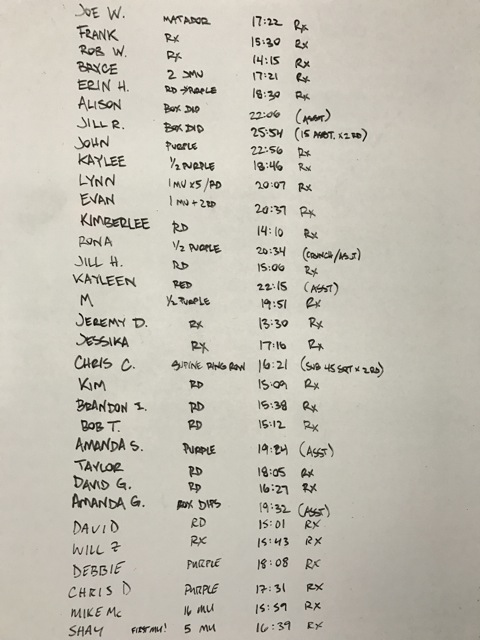 JOE W. MATADOR 17:22 Rx
FRANK Rx 15:30 Rx
ROB W. Rx 14:15 Rx
BRYCE 2 JMU 17:21 Rx
ERIN H. RD → PURPLE 18:30 Rx
ALISON BOX DIP 22:06 (ASST)
JILL R. BOX DIP 25:54 (15 ASST. x 2 RD)
JOHN PURPLE 22:56 Rx
KAYLEE 1/2 PURPLE 18:46 Rx
LYNN 1 MU x 5 / RD 20:07 Rx
EVAN 1 MU + 2 RD 20:37 Rx
KIMBERLEE RD 14:10 Rx
RONA 1/2 PURPLE 20:34 (CRUNCH/ASST)
JILL H. RD 15:06 Rx
KAYLEEN RED 22:15 (ASST)
M 1/2 PURPLE 19:51 Rx
JEREMY D. Rx 13:30 Rx
JESSIKA Rx 17:16 Rx
CHRIS C. SUPINE RING ROW 16:21 (SUB 45 SQT x 2 RD)
KIM RD 15:09 Rx
BRANDON I. RD 15:38 Rx
BOB T. RD 15:12 Rx
AMANDA S. PURPLE 19:24 (ASST)
TAYLOR RD 18:05 Rx
DAVID G. RD 16:27 Rx
AMANDA G. BOX DIPS 19:32 (ASST)
DAVID RD 15:01 Rx
WILL Z Rx 15:43 Rx
DEBBIE PURPLE 18:08 Rx
CHRIS D PURPLE 17:31 Rx
MIKE Mc 16 MU 15:59 Rx
SHAY FIRST MU! 5 MU 16:39 Rx